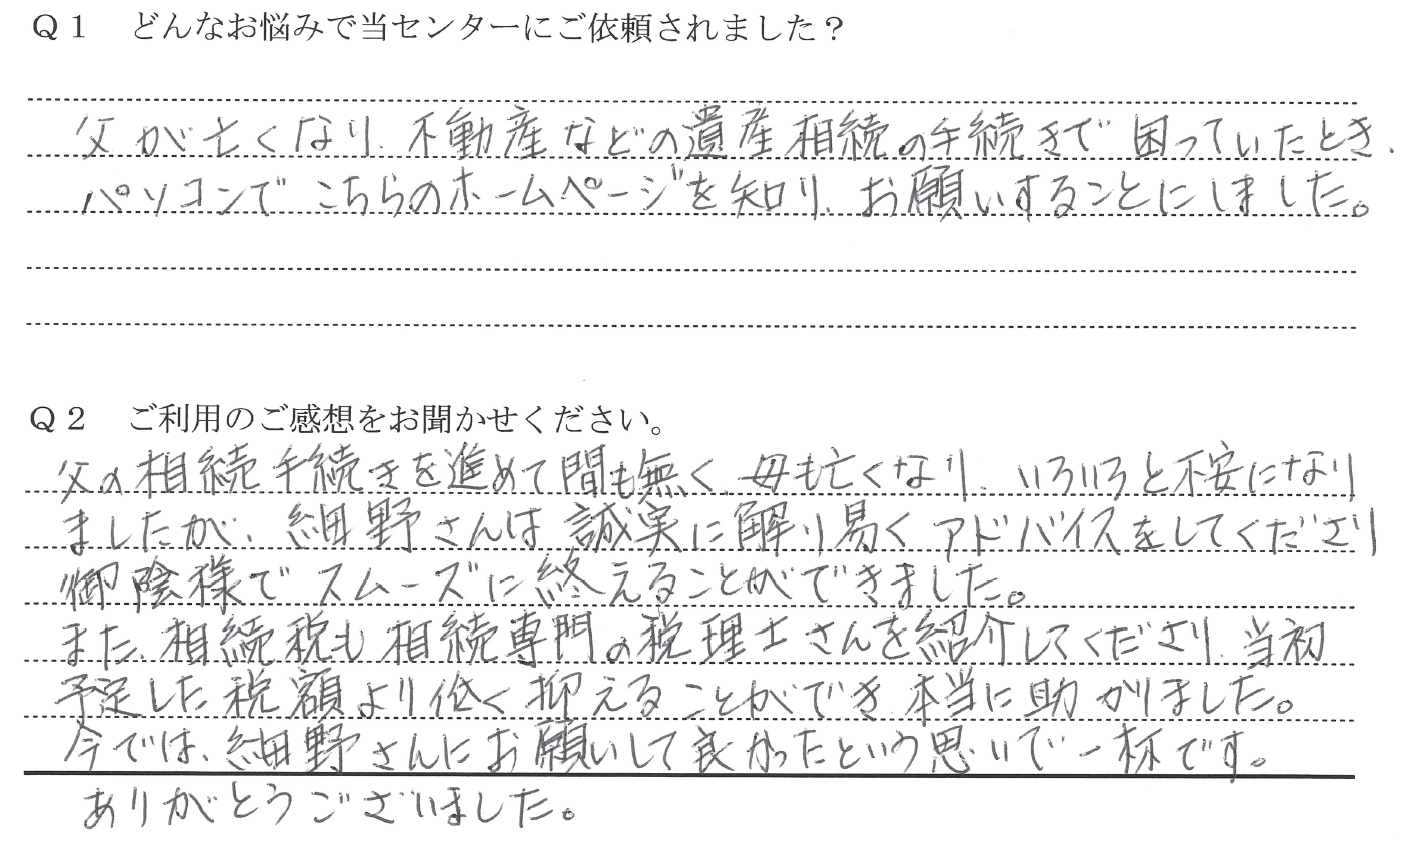 Q1 どんなお悩みで当センターにご依頼されました?
父が亡くなり、不動産などの遺産相続の手続きで困っていたとき、
パソコンでこちらのホームページを知り、お願いすることにしました。
Q2 ご利用のご感想をお聞かせください。
父の相続手続きを進めて間も無く、母も亡くなり、いろいろと不安になり
ましたが、細野さんは誠実に解り易くアドバイスをしてくださり
御陰様でスムーズに終えることができました。
また、相続税も相続専門の税理士さんを紹介してくださり、当初
予定した税額より低く抑えることができ、本当に助かりました。
今では、細野さんにお願いして良かったという思いで一杯です。
ありがとうございました。